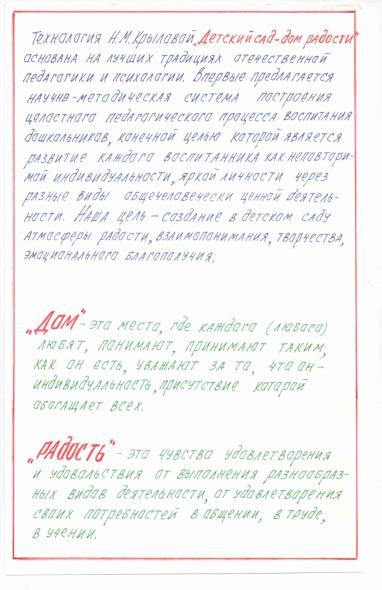 Технология Н.М.Крыловой „Детский сад-дом радости"
основана на лучших традициях отечественной
педагогики и психологии. Впервые предлагается
научно-методическая система построения
целостного педагогического процесса воспитания
дошкольников, конечной целью которой является
развитие каждого воспитанника как неповтори-
мой индивидуальности, яркой личности через
разные виды общечеловечески ценной деятель-
ности. Наша цель – создание в детском саду
атмосферы радости, взаимопонимания, творчества,
эмоционального благополучия.
„Дом" – это место, где каждого (любого)
любят, понимают, принимают таким,
как он есть, уважают за то, что он –
индивидуальность, присутствие которой
обогащает всех.
„Радость" – это чувство удовлетворения
и удовольствия от выполнения разнообраз-
ных видов деятельности, от удовлетворения
своих потребностей в общении, в труде,
в учении.